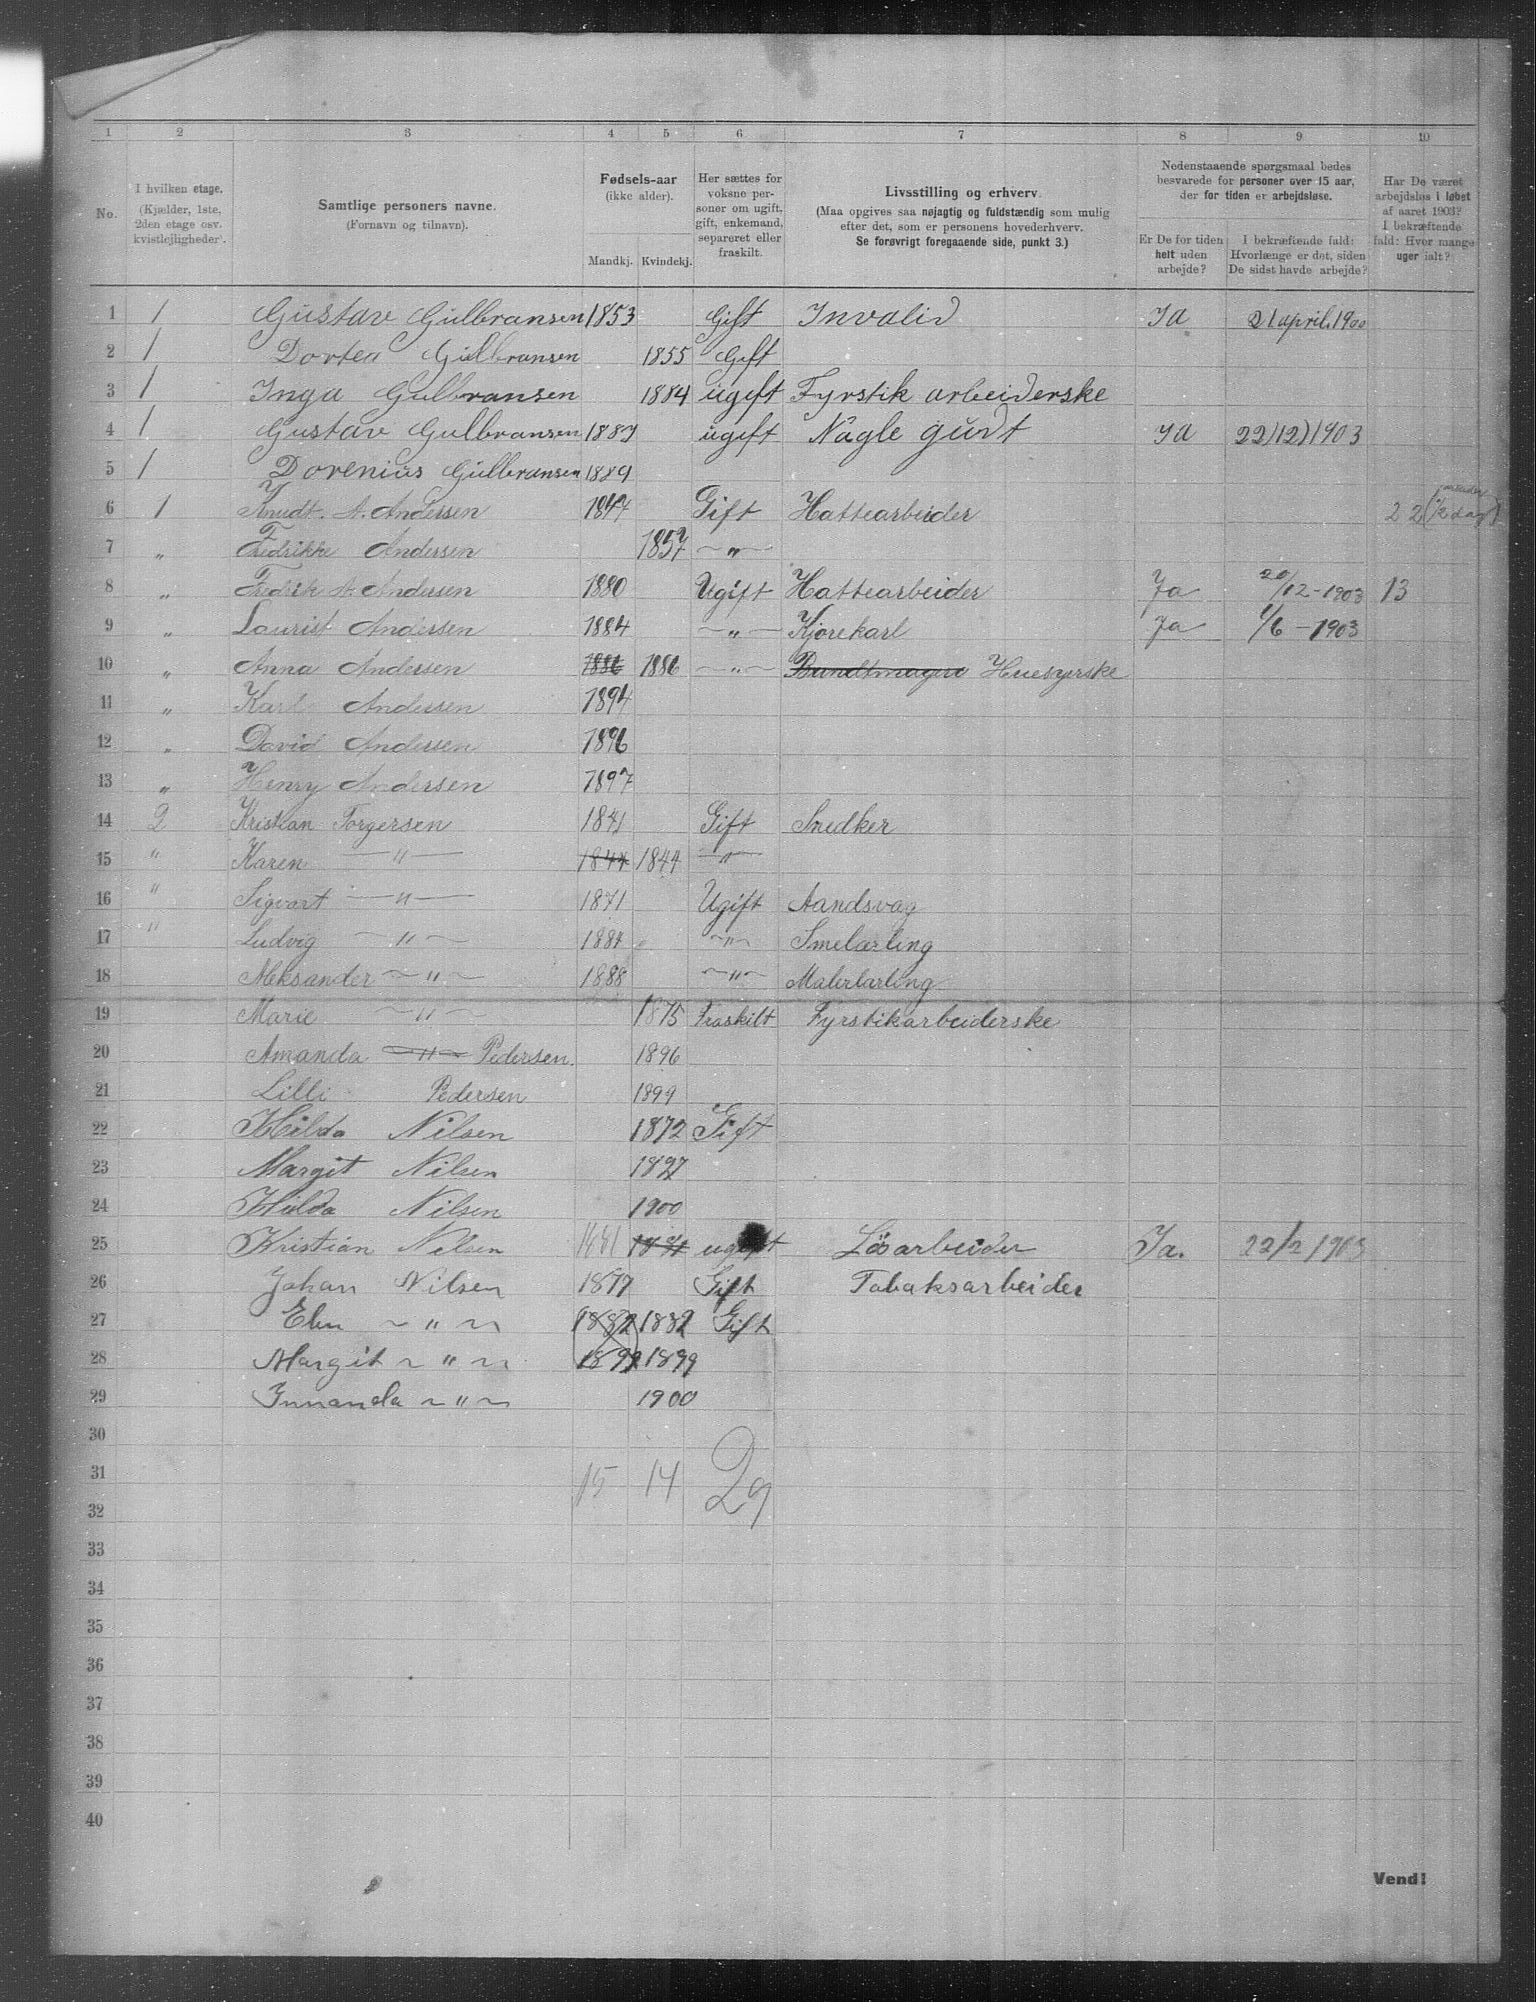 1 2 3 4 5 6 7 8 9 10
No.
I hvilken etage.
(Kjælder, 1ste,
2den etage osv.
kvistlejligheder).
Samtlige personers navne.
(Fornavn og tilnavn).
Fødsels-aar
(ikke alder).
Mandkj. Kvindekj.
Her sættes for
voksne per-
soner om ugift,
gift, enkemand,
separeret eller
fraskilt.
Livsstilling og erhverv.
(Maa opgives saa nøjagtig og fuldstændig som mulig
efter det, som er personens hovederhverv.
Se forøvrigt foregaaende side, punkt 3.)
Nedenstaaende spørgsmaal bedes
besvarede for personer over 15 aar,
der for tiden er arbejdsløse.
Er De for tiden
helt uden
arbejde?
I bekræftende fald:
Hvorlænge er det, siden
De sidst havde arbejde?
Har De været
arbejdsløs i løbet
af aaret 1903?
I bekræftende
fald: Hvor mange
uger ialt?
1 1 Gustav Gulbransen 1853 Gift Invalid Ja 21 april 1900
2 1 Dortea Gulbransen 1855 Gift
3 1 Inga Gulbransen 1884 ugift Fyrstik arbeiderske
4 1 Gustav Gulbransen 1887 ugift Nagle gudt Ja 22/12/1903
5 1 Dorenius Gulbransen 1889
6 1 Knudt. A. Andersen 1847 Gift Hattearbeider 2 2 1/2 dag
7 „ Fredrikke Andersen 1857 — „ —
8 „ Fredrik A. Andersen 1880 Ugift Hattearbeider Ja 20/12-1903 13
9 „ Laurist Andersen 1884 — „ — Kjørekarl Ja 1/6 - 1903
10 „ Anna Andersen 1886 1886 — „ — Bundtmager Huesyerske
11 „ Karl Andersen 1894
12 „ David Andersen 1896
13 „ Henry Andersen 1897
14 2 Kristian Torgersen 1841 Gift Snedker
15 " Karen — " — 1844 1844 — " —
16 " Sigvart — " — 1871 Ugift Aandsvag
17 " Ludvig — " — 1884 — " — Smelærling
18 Aleksander — " — 1888 — " — Malerlærling
19 Marie — " — 1875 Fraskilt Fyrstikarbeiderske
20 Amanda — " — Pedersen. 1896
21 Lilli Pedersen 1899
22 Hilda Nilsen 1872 Gift
23 Margit Nilsen 1897
24 Hilda Nilsen 1900
25 Kristian Nilsen 1881 1881 ugift Løsarbeider Ja. 22/2 1903
26 Johan Nilsen 1877 Gift Tobaksarbeider
27 Elen ~ " ~ 1882 1882 Gift
28 Margit ~ " ~ 1899 1899
29 ~ " ~ 1900
30
31 15 14 29
32
33
34
35
36
37
38
39
40
Vend!